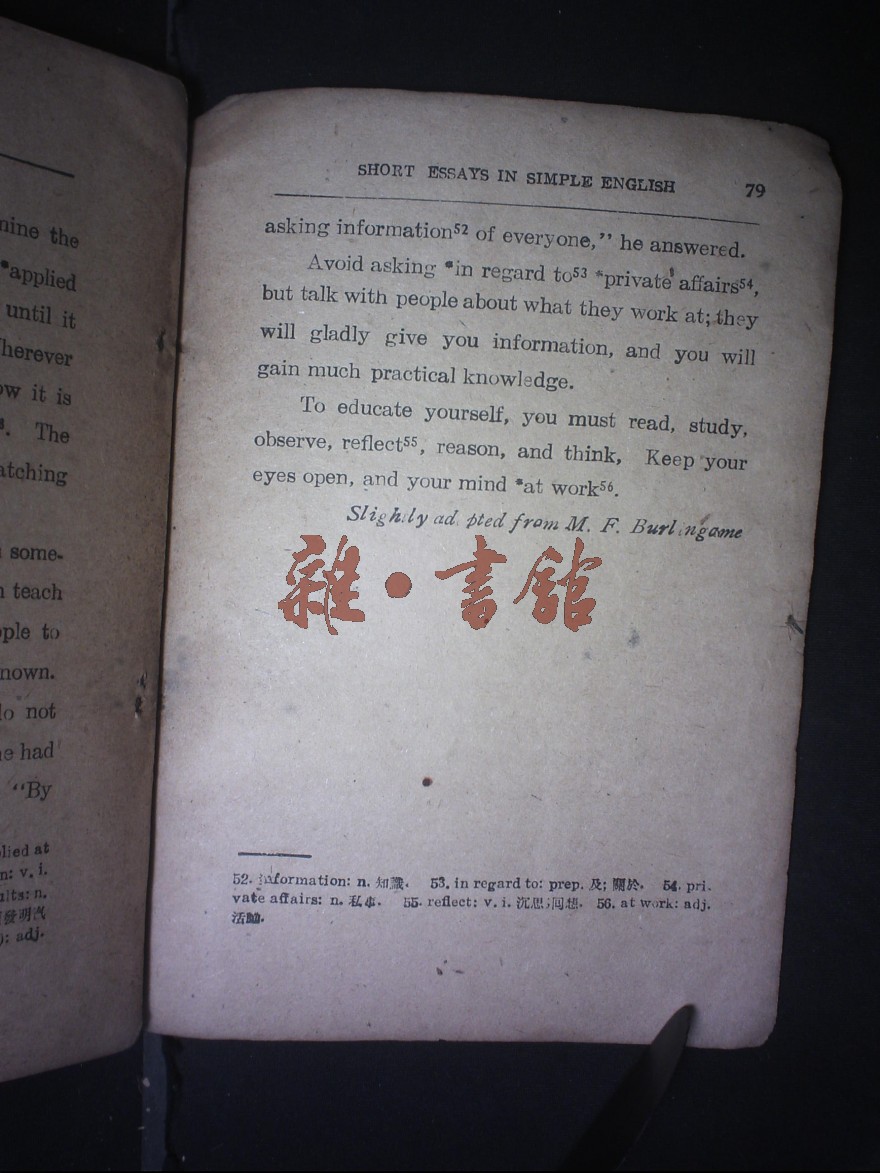 nine the
*applied
until it
Wherever
ow it is
The
atching
some-
teach
ople to
nown.
do not
he had
"By
plied at
n: v. i.
ults: n.
發明汽
); adj.
SHORT ESSAYS IN SIMPLE ENGLISH 79
asking information⁵² of everyone," he answered.
Avoid asking *in regard to⁵³ *private affairs⁵⁴,
but talk with people about what they work at; they
will gladly give you information, and you will
gain much practical knowledge.
To educate yourself, you must read, study,
observe, reflect⁵⁵, reason, and think, Keep your
eyes open, and your mind *at work⁵⁶.
Slightly adapted from M. F. Burlingame
雜·書館
52. information: n. 知識. 53. in regard to: prep. 及; 關於. 54. pri-
vate affairs: n. 私事. 55. reflect: v. i. 沉思;回想. 56. at work: adj.
活動.